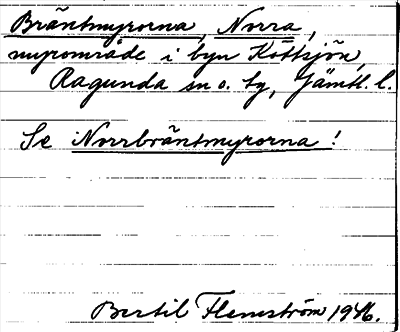 Bräntmyrorna, Norra,
myrområde i byn Köttsjön,
Ragunda sn o. tg, Jämtl. l.
Se Norrbräntmyrorna!
Bertil Flemström 1946.